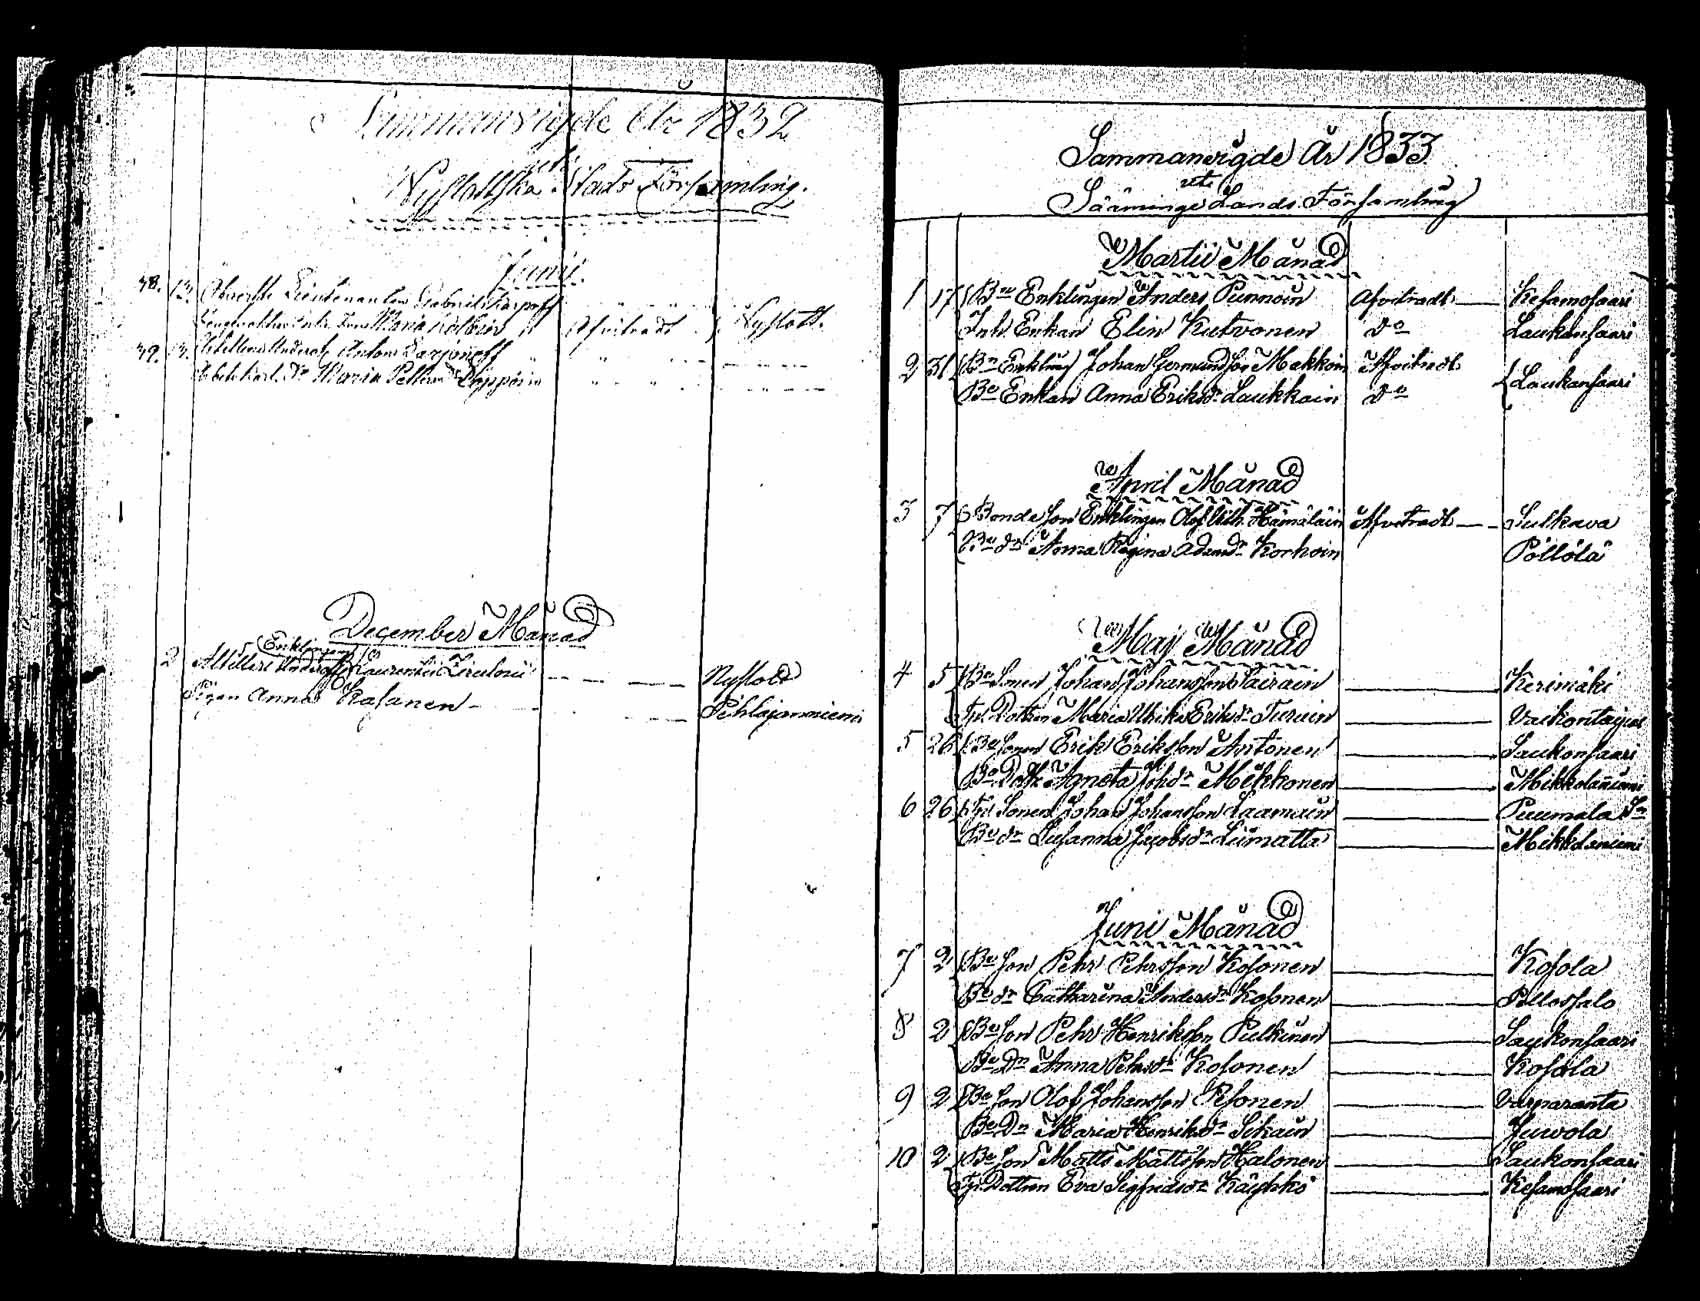 Sammanvigde År 1832
uti
Nyslottska Stads Församling.
Junii
38. 13. Öfverste Lieutenanten Gabriel Karpoff
Maria Afvitradt Nyslott.
39. 13. Anton Larionoff
Maria Pettersdr
December Månad
Enklingen
2 Laurentei
Nyslott
Pigan Anna Kasanen
Pihlajaniemi
Sammanvigde År 1833
uti
Sääminge Lands Församling
Martii Månad
1 17 Bn Enklingen Anders Punnoin Afvitradt Kesamosaari
Inh. Enkan Elin Kutvonen Do Laukansaari
2 31 Bn Enkling Johan Germundsson Makkoin Afvitradt
Be Enkan Anna Eriksdr Laukkain Do Laukansaari
April Månad
3 7 Bondeson Enklingen Olof Vilh. Hämäläin Afvitradt Sulkava
Be dr Anna Regina Adamdr Korhoin Pöllölä
Maj Månad
4 5 Be Sonen Johan Johansson Pairain Kerimäki
Tp. Dottren Maria Ulrika Eriksdr Turuin
5 26 Be Sonen Erik Eriksson Avtonen Saukonsaari
Be Dottr Agneta Johdr Mikkonen Mikkolaniemi
6 26 Tp. Sonen Johan Johansson Laamain Puumala Sn
Be dr Susanna Jacobsdr Liimatta Mikkolaniemi
Juni Månad
7 2 Be Son Pehr Pehrsson Kosonen Kosola
Be dr Catharina Andersdr Kosonen Pellossalo
8 2 Be Son Pehr Henriksson Pulkinen Saukonsaari
Be Dr Anna Pehrsdr Kosonen Kosola
9 2 Be Son Olof Johansson Rsonen Varparanta
Be Dr Maria Henriksdr Sikain Juvola
10 2 Be Son Matts Mattsson Halonen Saukonsaari
Tp. Dottren Eva Sigfredsdr Käyhkö Kesamosaari